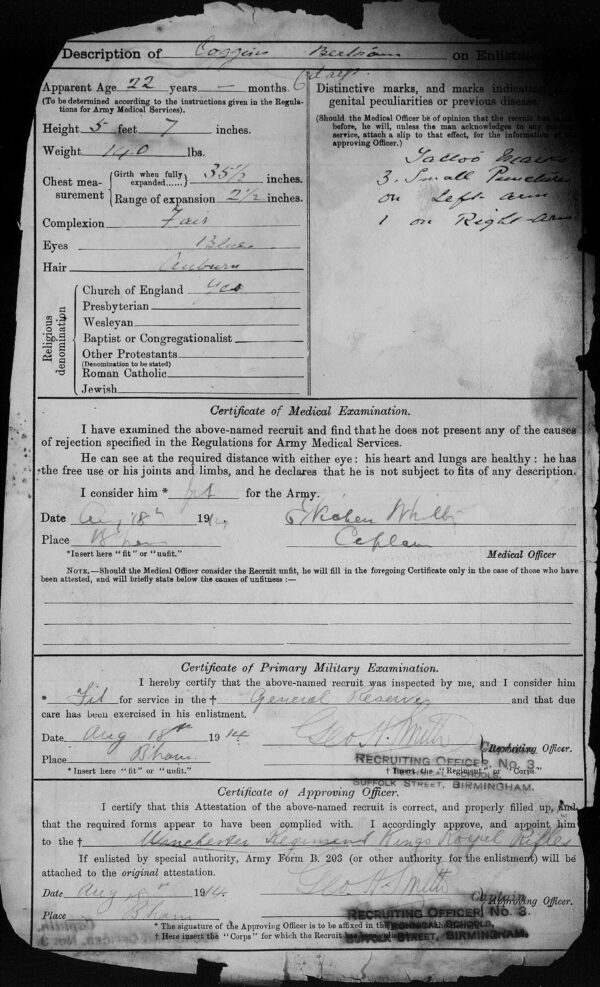 Description of Coggins Bertram on Enlistment
Apparent Age 22 years — months.
(To be determined according to the instructions given in the Regula-
tions for Army Medical Services).
Height 5 feet 7 inches.
Weight 140 lbs.
Chest mea-
surement
Girth when fully
expanded...... 35½ inches.
Range of expansion 2½ inches.
Complexion Fair
Eyes Blue
Hair Auburn
Religious
denomination
Church of England yes
Presbyterian
Wesleyan
Baptist or Congregationalist
Other Protestants
(Denomination to be stated)
Roman Catholic
Jewish
Distinctive marks, and marks indicating
genital peculiarities or previous disease.
(Should the Medical Officer be of opinion that the recruit has
before, he will, unless the man acknowledges to any
service, attach a slip to that effect, for the information of
approving Officer.)
Tattoo Marks
3. Small Puncture
on Left arm
1 on Right arm
Certificate of Medical Examination.
I have examined the above-named recruit and find that he does not present any of the causes
of rejection specified in the Regulations for Army Medical Services.
He can see at the required distance with either eye : his heart and lungs are healthy : he has
the free use or his joints and limbs, and he declares that he is not subject to fits of any description.
I consider him * fit for the Army.
Date Aug 18th 1914
Place B'ham Captain
*Insert here "fit" or "unfit." Medical Officer
NOTE.—Should the Medical Officer consider the Recruit unfit, he will fill in the foregoing Certificate only in the case of those who have
been attested, and will briefly state below the causes of unfitness :—
Certificate of Primary Military Examination.
I hereby certify that the above-named recruit was inspected by me, and I consider him
* Fit for service in the † General Reserve and that due
care has been exercised in his enlistment.
Date Aug 18th 1914 Geo H. Smith
Captain
Recruiting Officer.
Place B'ham.
RECRUITING OFFICER, No. 3.
* Insert here "fit" or "unfit." † Insert the "Regiment" or "Corps."
SUFFOLK STREET, BIRMINGHAM.
Certificate of Approving Officer.
I certify that this Attestation of the above-named recruit is correct, and properly filled up, and
that the required forms appear to have been complied with. I accordingly approve, and appoint him
to the † Manchester Regiment Kings Royal Rifles
If enlisted by special authority, Army Form B. 203 (or other authority for the enlistment) will be
attached to the original attestation.
Date Aug 18th 1914 Geo H. Smith
Captain
Approving Officer.
Place B'ham
RECRUITING OFFICER No. 3.
* The signature of the Approving Officer is to be affixed in the
TECHNICAL SCHOOLS,
† Here insert the "Corps" for which the Recruit has been
SUFFOLK STREET, BIRMINGHAM.